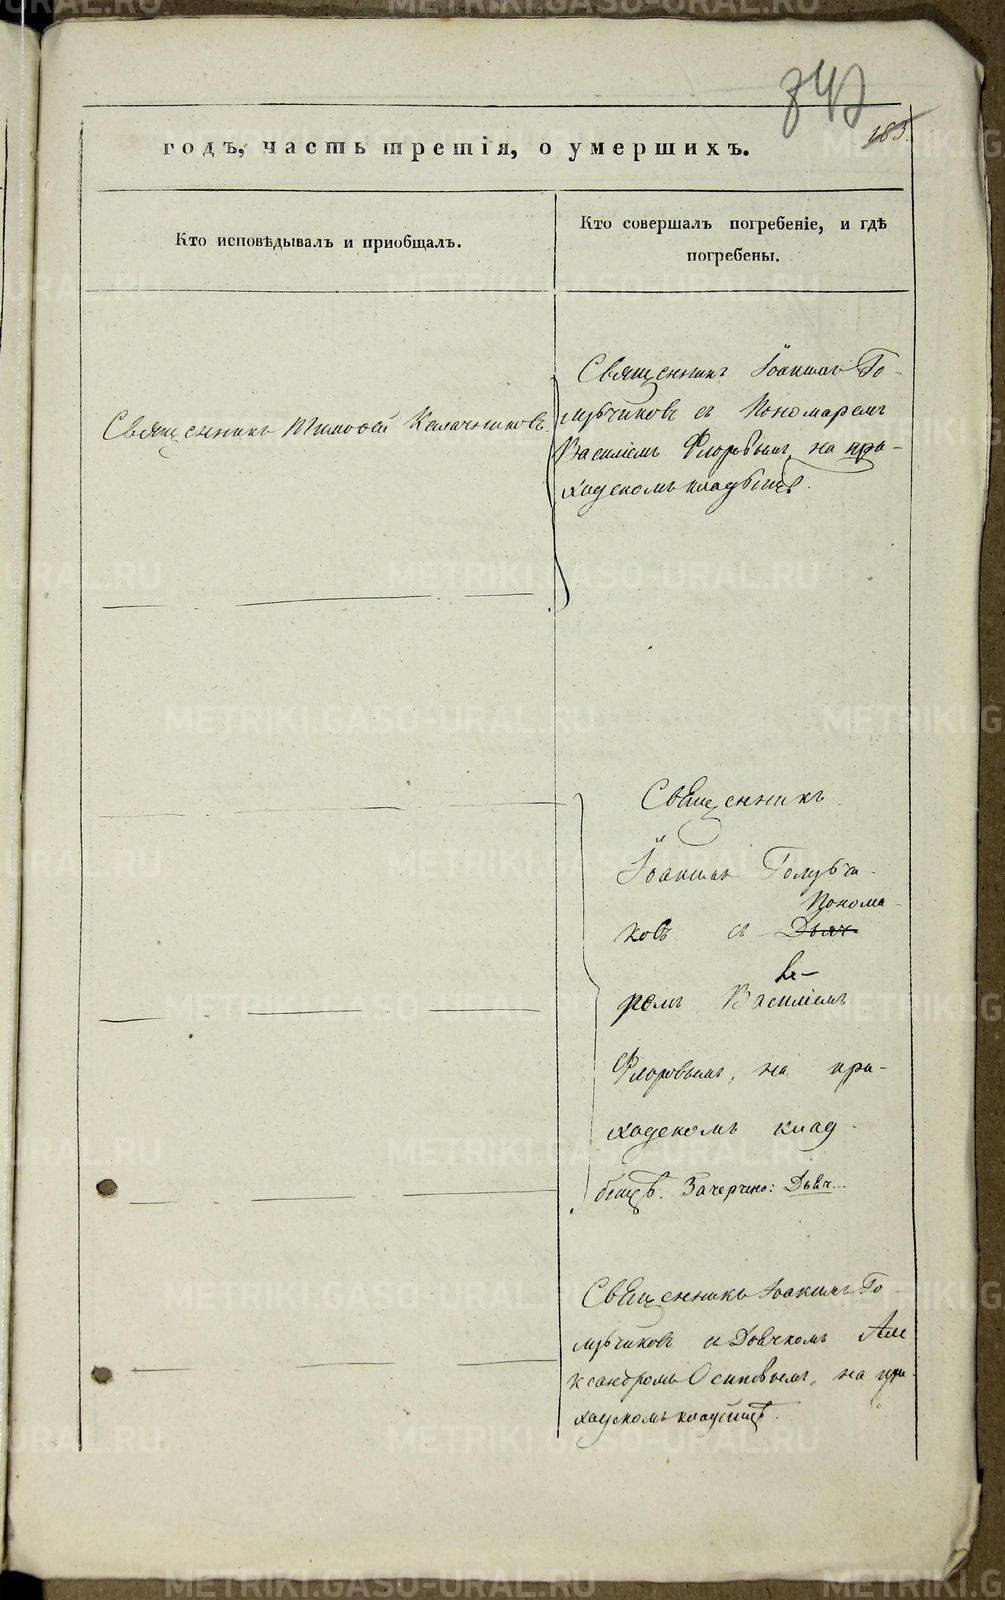 342
183.
годъ, часть третія, о умершихъ.
Кто исповѣдывалъ и пріобщалъ.
Кто совершалъ погребеніе, и гдѣ
погребены.
Священникъ Тимоѳей Калачниковъ
Священникъ Іоакимъ Го-
лубчиковъ съ Пономаремъ
Василіемъ Флоровымъ, на при-
ходскомъ кладбищѣ.
Священникъ
Іоакимъ Голубчи-
Понома-
ковъ съ Дьяч
ромъ Василіемъ
Флоровымъ, на при-
ходскомъ клад-
бищѣ. Зачерчено: Дьяч...
Священникъ Іоакимъ Го-
лубчиковъ съ Дьячкомъ Але
ксандромъ Осиповымъ, на при-
ходскомъ кладбищѣ.
METRIKI.GASO-URAL.RU